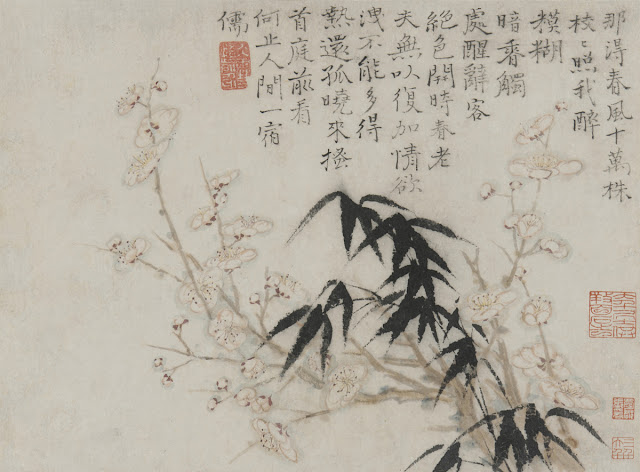 那得春風十萬株
枝〻照我醉
模糊
暗香觸
處醒辭客
絕色開時春老
夫無以復加情欲
洩不能多得
熱還孤曉來搔
首庭前看
何止人間一宿
儒